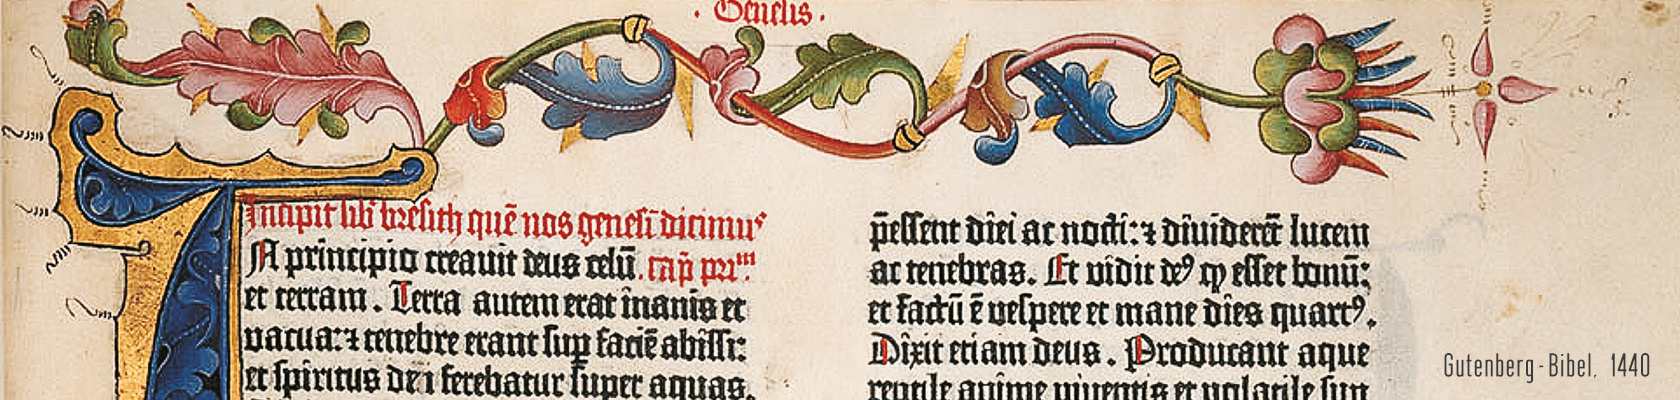 · Genesis ·
Incipit lib̄ bresith quē nos genesī dicimus
In principio creauit deus celū. cap̄ pri^m.
et terram. Terra autem erat inanis et
vacua: ⁊ tenebre erant sup̱ faciē abissi:
et spiritus dei ferebatur super aquas.
p̄essent diei ac nocti: ⁊ diuiderēt lucem
ac tenebras. Et vidit deꝰ ꝙ esset bonū:
et factū ē vespere et mane dies quartꝰ.
Dixit etiam deus. Producant aque
reptile anime viventis et volatile sup
Gutenberg-Bibel, 1440